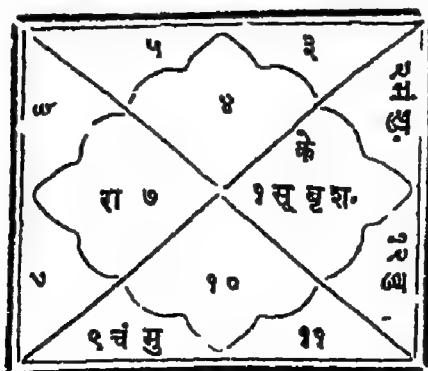 ५
३
४
२मं शु.
६
के
रा ७
१सू बृ श.
८
१२ बु.
१०
९ चं मु
११